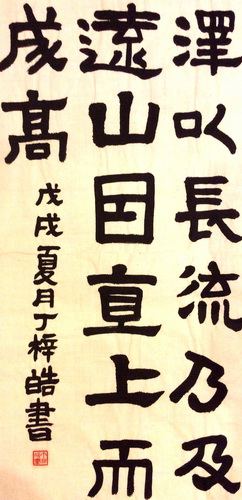 澤以長流乃及
遠山因直上而
成高
戊戌夏月丁梓皓書